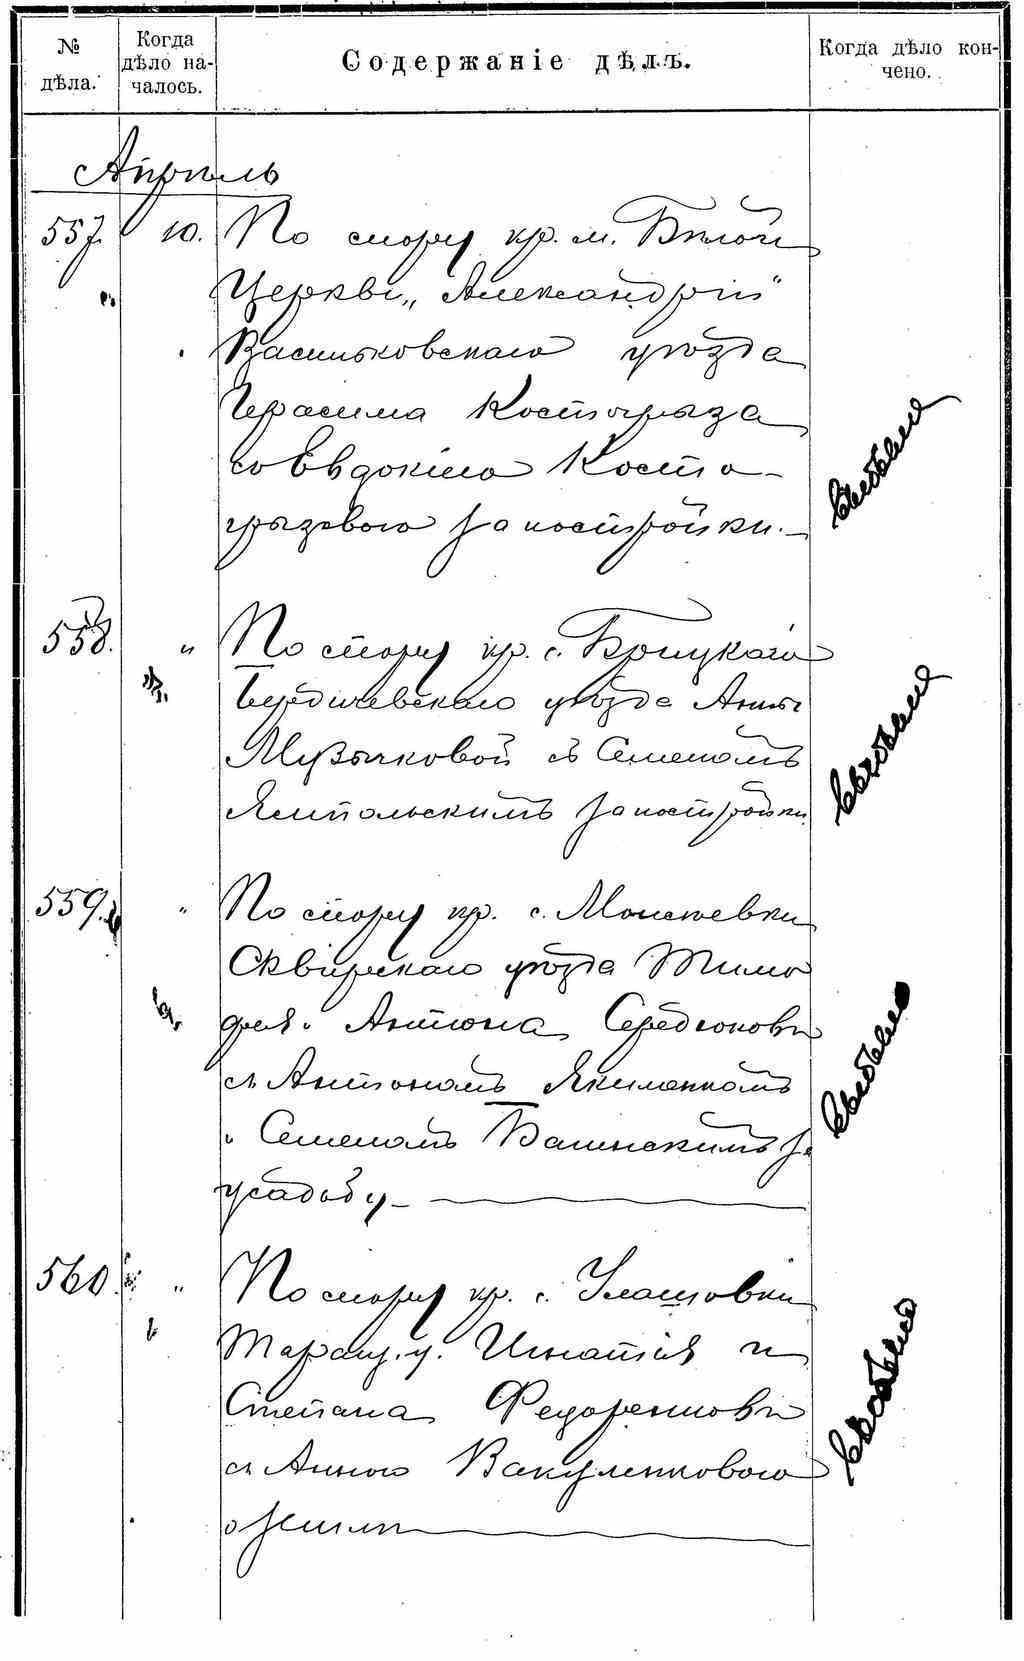 № дѣла.
Когда дѣло началось.
Содержаніе дѣлъ.
Когда дѣло кончено.
Апрѣль
557. 10. По спору кр. м. Бѣлой
Церкви „Александрія"
Васильковскаго уѣзда
Герасима Костогрыза
съ Евдокіею Косто-
грызовою за постройки.
выбыло
558. " По спору кр. с.
Бердичевскаго уѣзда Анны
Музычковой съ Семеномъ
Ямпольскимъ за постройки
выбыло
559. " По спору кр. с.
Сквирскаго уѣзда Тимо
фея и Антона Середюковъ
съ Антономъ Якименкомъ
и Семеномъ за
усадьбу
выбыло
560. " По спору кр. с. Улашовки
Таращ. у. Игнатія и
Степана Федоренковъ
съ Анною Вакуленковою
о землѣ
выбыло